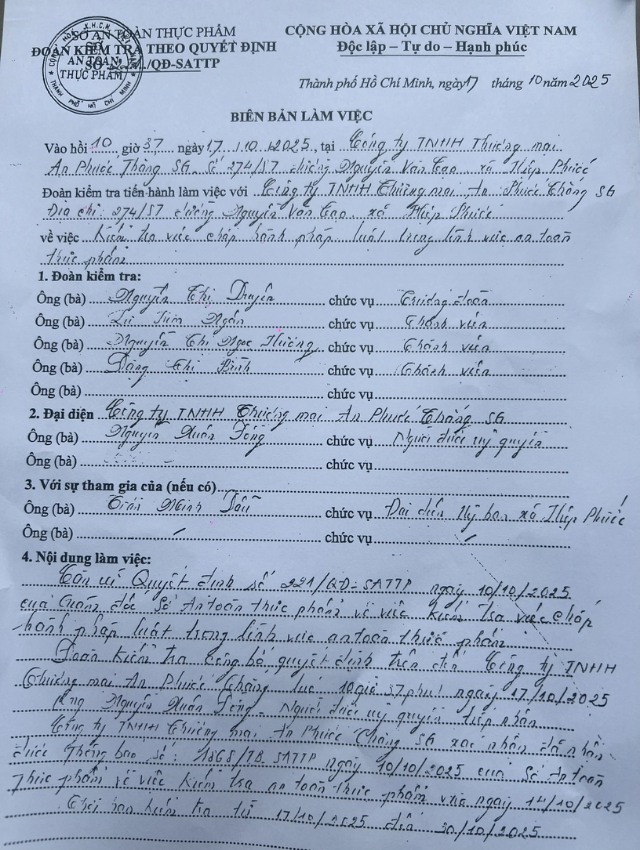 SỞ AN TOÀN THỰC PHẨM
ĐOÀN KIỂM TRA THEO QUYẾT ĐỊNH
SỐ 221/QĐ-SATTP
CỘNG HÒA XÃ HỘI CHỦ NGHĨA VIỆT NAM
Độc lập – Tự do – Hạnh phúc
Thành phố Hồ Chí Minh, ngày 17 tháng 10 năm 2025
SỞ
AN TOÀN
THỰC PHẨM
THÀNH PHỐ HỒ CHÍ MINH
BIÊN BẢN LÀM VIỆC
Vào hồi 10 giờ 37 ngày 17/10/2025, tại Công ty TNHH Thương mại
An Phước Thắng SG. Số 274/57 đường Nguyễn Văn Tạo xã Hiệp Phước
Đoàn kiểm tra tiến hành làm việc với Công ty TNHH Thương mại An Phước Thắng SG
Địa chỉ: 274/57 đường Nguyễn Văn Tạo xã Hiệp Phước
về việc kiểm tra việc chấp hành pháp luật trong lĩnh vực an toàn
thực phẩm
1. Đoàn kiểm tra:
Ông (bà) Nguyễn Thị Duyên chức vụ Trưởng đoàn
Ông (bà) Kim Ngân chức vụ Thành viên
Ông (bà) Nguyễn Thị Ngọc Hường chức vụ Thành viên
Ông (bà) Thị Bình chức vụ Thành viên
Ông (bà) chức vụ
2. Đại diện Công ty TNHH Thương mại An Phước Thắng SG
Ông (bà) Nguyễn Xuân chức vụ Người được uỷ quyền
Ông (bà) chức vụ
3. Với sự tham gia của (nếu có)
Ông (bà) Trần Minh chức vụ Đại diện Uỷ ban xã Hiệp Phước
Ông (bà) chức vụ
4. Nội dung làm việc:
Căn cứ Quyết định số 221/QĐ-SATTP ngày 10/10/2025
của Giám đốc Sở An toàn thực phẩm về việc kiểm tra việc chấp
hành pháp luật trong lĩnh vực an toàn thực phẩm
Đoàn kiểm tra công bố quyết định trên đến Công ty TNHH
Thương mại An Phước Thắng lúc 10 giờ 37 phút ngày 17/10/2025
Ông Nguyễn Xuân - Người được uỷ quyền tiếp nhận
Công ty TNHH Thương mại An Phước Thắng SG xác nhận đã nhận
được Thông báo số: 1868/TB.SATTP ngày 10/10/2025 của Sở An toàn
thực phẩm về việc kiểm tra an toàn thực phẩm vào ngày 14/10/2025
Thời hạn kiểm tra từ 17/10/2025 đến 30/10/2025